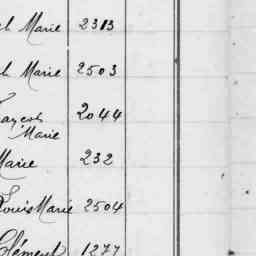 Marie 2313
Marie 2503
2044
Marie
Marie 232
Louis Marie 2504
Clément 1277